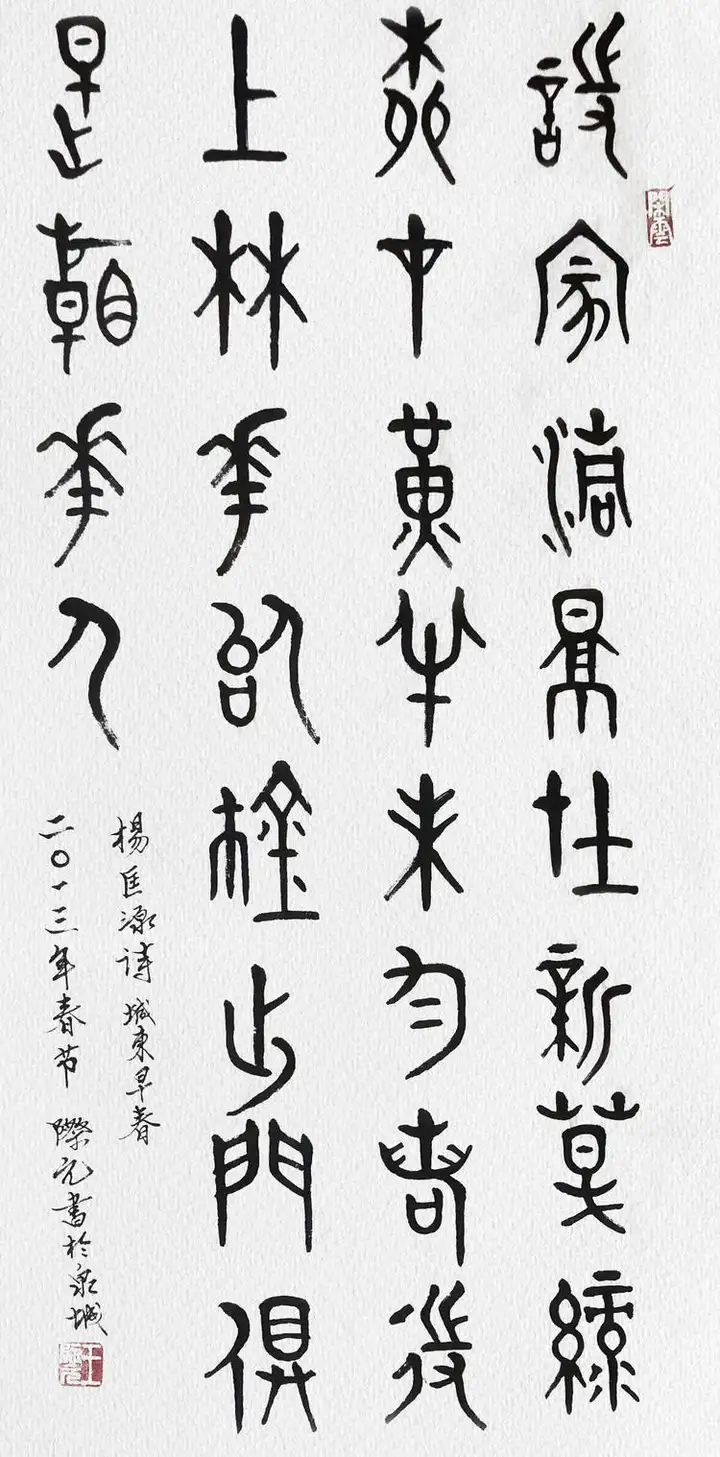 詩家清景在新春綠
柳才黃半未勻若待
上林花似錦出門俱
是看花人
楊巨源詩 城東早春
二〇一三年春节 際元書於泉城
閑雲
王際元